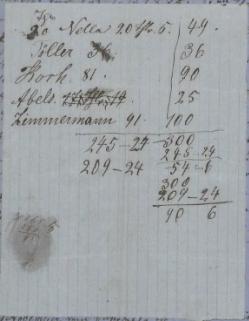 20 Nella 20 5. 49.
36. 36
Horh. 81. 90
Abels. 25
Zimmermann 91. 100
245-24 300
209-24 245 24
54-6
300
209-24
90 6